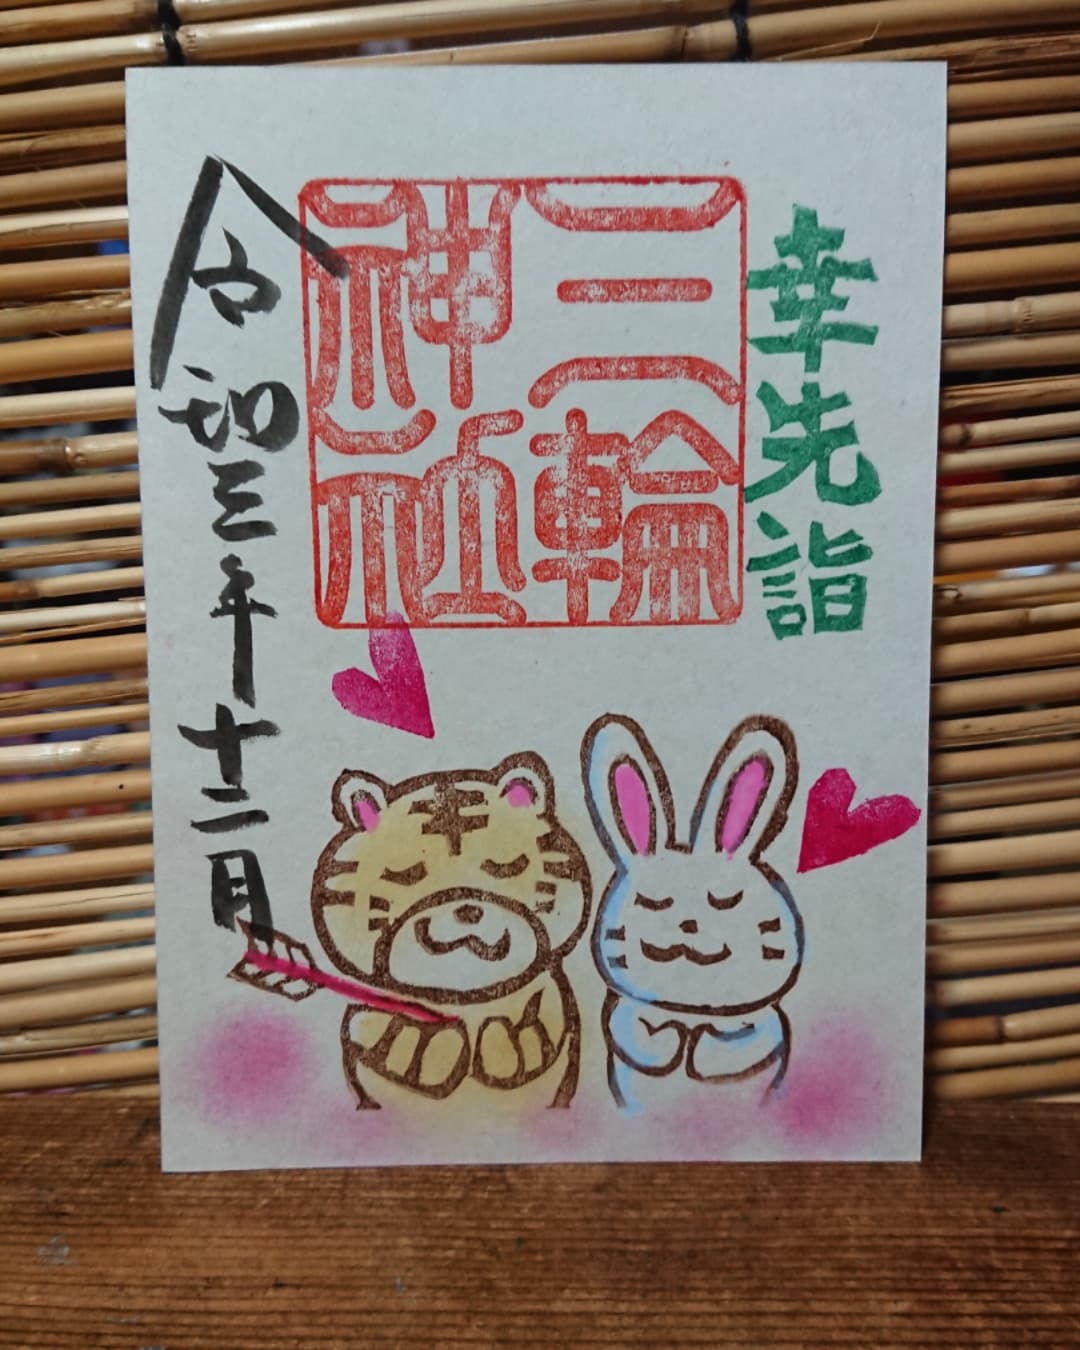 幸先詣
三輪
神社
令和三年十二月